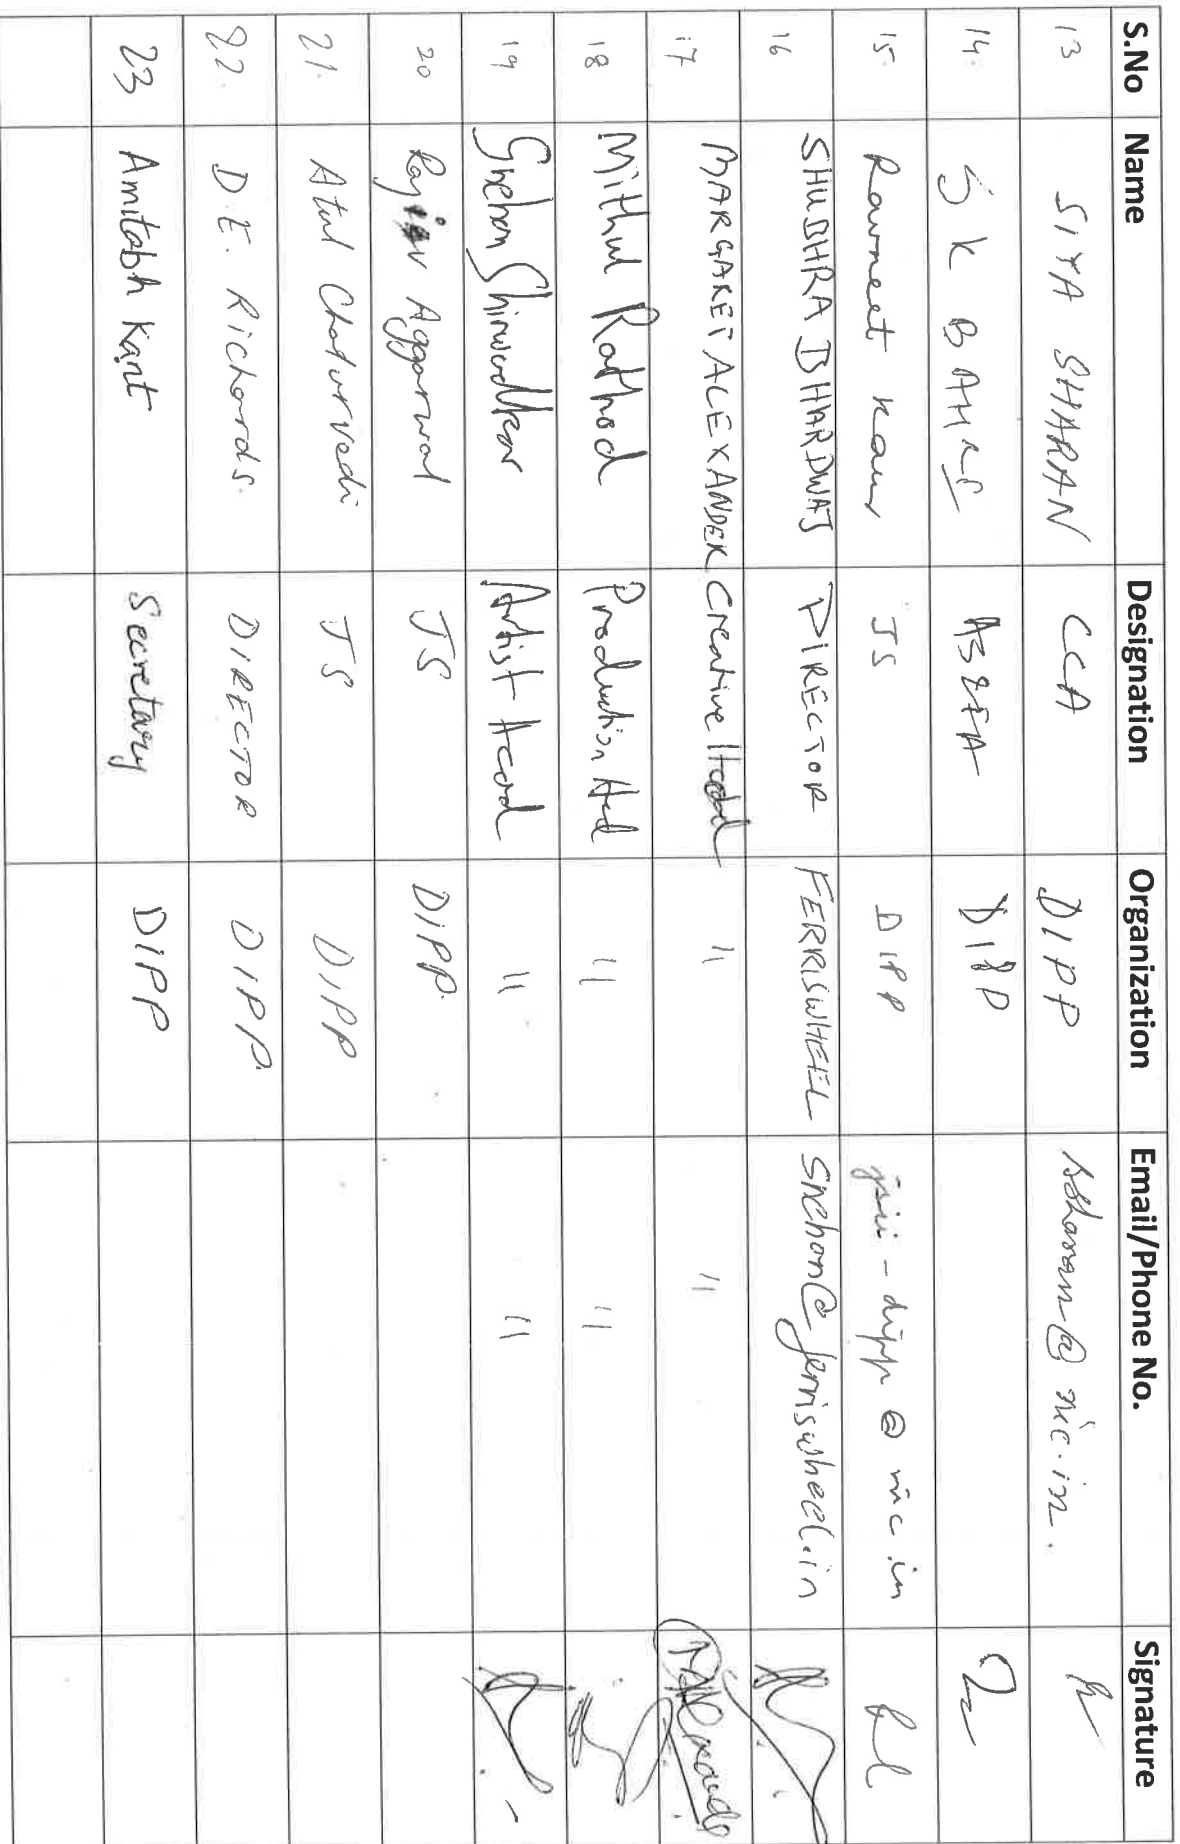 S.No Name Designation Organization Email/Phone No. Signature
13 SIYA SHARAN CCA DIPP sharan@nic.in.
14. S K BAHRI AS&FA DIPP
15. Ravneet Kaur JS DIPP jsii-dipp@nic.in
16 SHUBHRA BHARDWAJ DIRECTOR FERRISWHEEL @ferriswheel.in
17 MARGARET ALEXANDER Creative Head 11 11
18 Mithul Rathod Production Hed 11 11
19 Artist Head 11 11
20 Rajiv Aggarwal JS DIPP.
21. Atul Chaturvedi JS DIPP
22. D.E. Richards. DIRECTOR DIPP.
23 Amitabh Kant Secretary DIPP